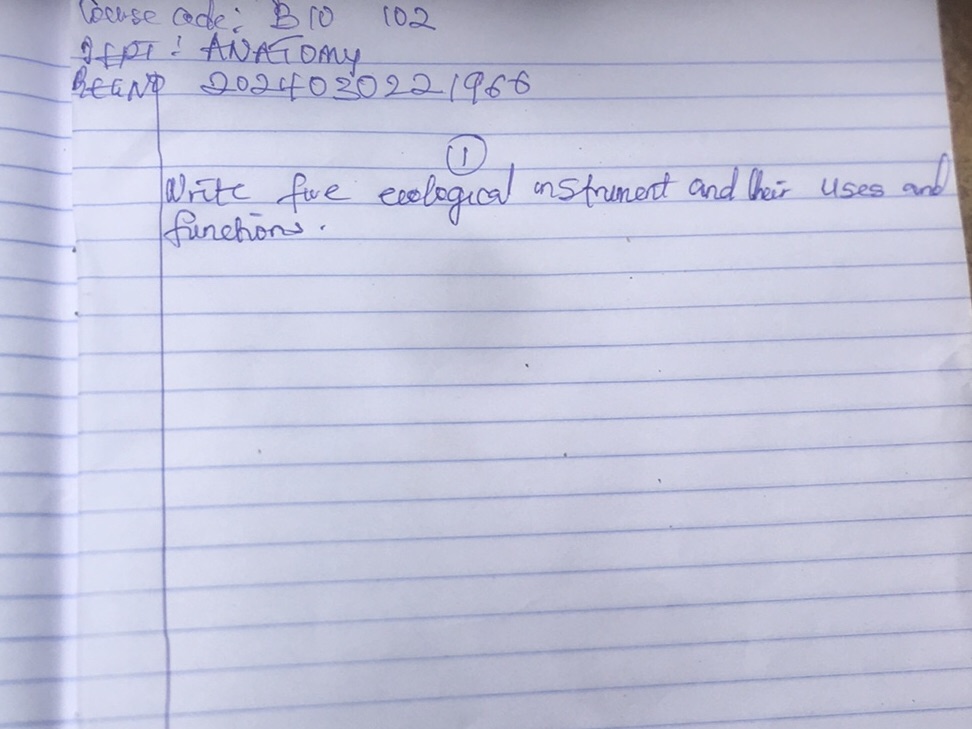 Course code: BIO 102
DEPT: ANATOMY
REGNO 2024030221966
①
Write five ecological instrument and their uses and
functions.